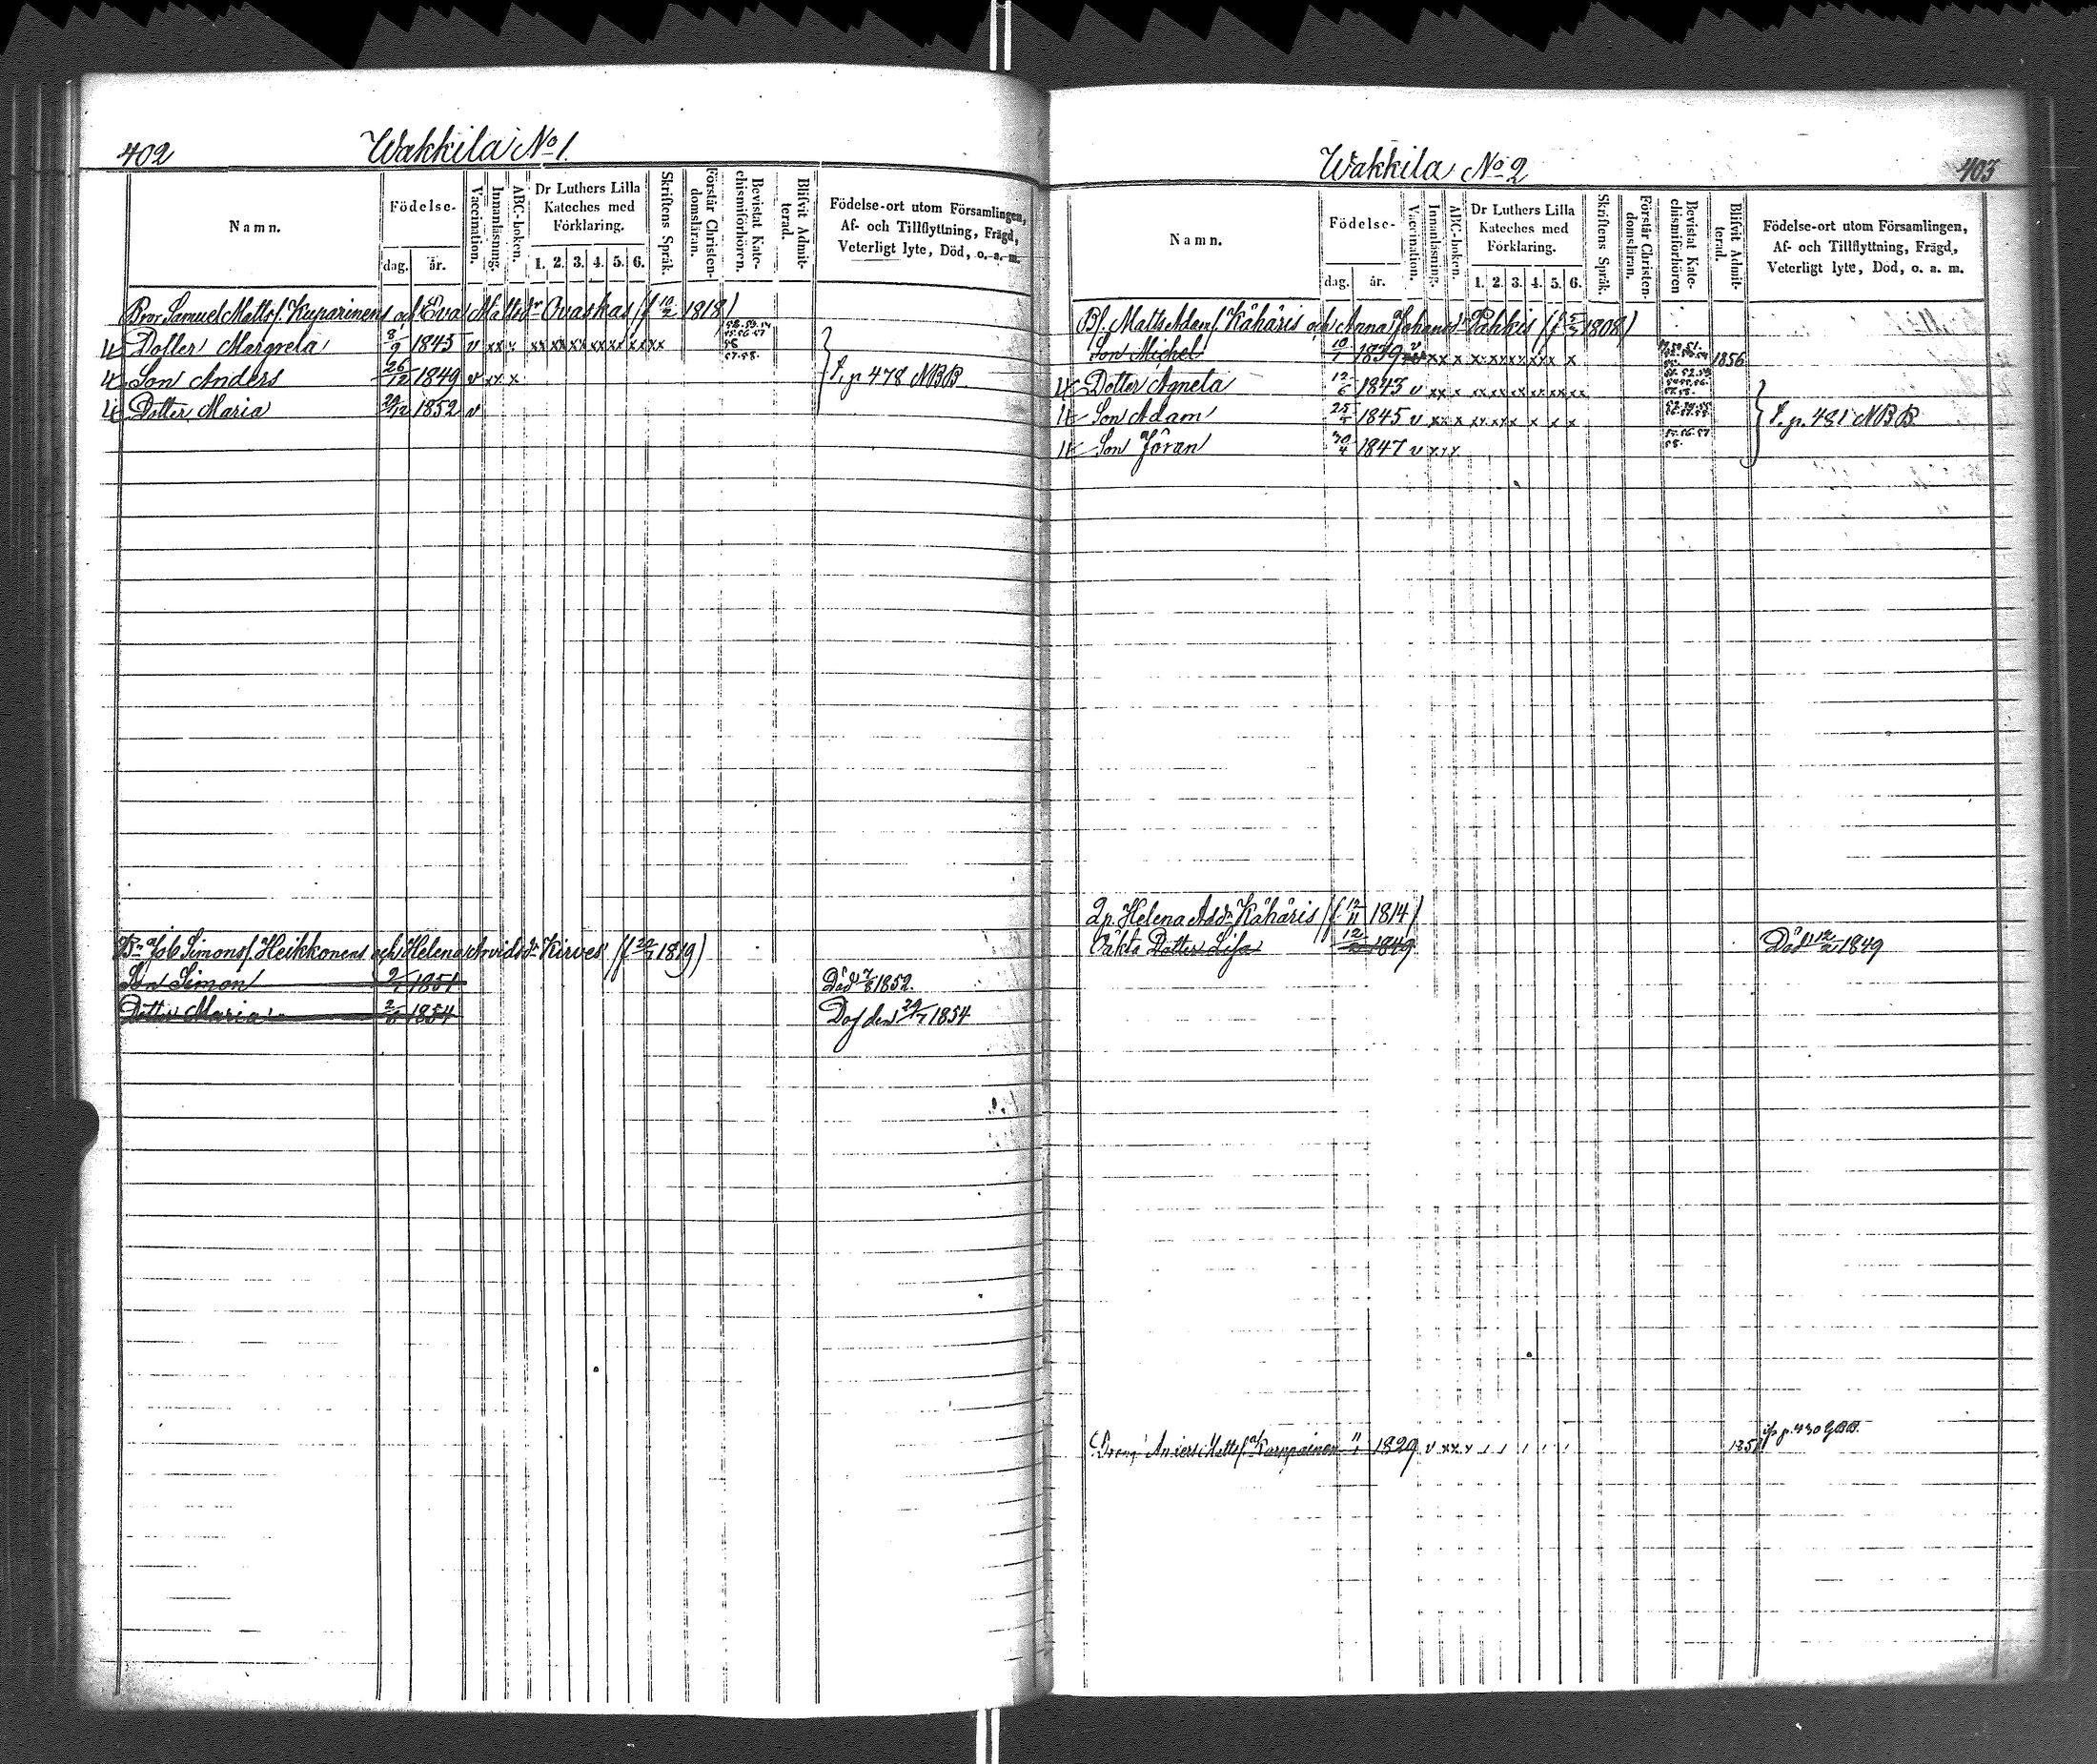 402
Wakkila No 1.
Namn.
Födelse-
dag.
år.
Vaccination.
Innanläsning.
ABC-boken.
Dr Luthers Lilla
Kateches med
Förklaring.
1. 2. 3. 4. 5. 6.
Skriftens Språk.
Förstår Christen-
domsläran.
Bevistat Kate-
chismiförhören.
Blifvit Admit-
terad.
Födelse-ort utom Församlingen,
Af- och Tillflyttning, Frägd,
Veterligt lyte, Död, o. a. m.
Bror Samuel Matts. Kuparinens och Eva Mattsdr Ovaskas (f. 10/2 1818)
Dotter Margreta 8/9 1845 v xx x xx xx xx xx xx xx xx
Son Anders 26/12 1849 v xx x
T. p 478 NBB
Dotter Maria 29/12 1852 v
Job Simons. Heikkonens och Helena Arvidsdr Kirves (f. 1819)
Son Simon 2/1 1851 Död 1852.
Dotter Maria 1854 Död den 29/7 1854
Wakkila No 2
403
Namn.
Födelse-
dag.
år.
Vaccination.
Innanläsning.
ABC-boken.
Dr Luthers Lilla
Kateches med
Förklaring.
1. 2. 3. 4. 5. 6.
Skriftens Språk.
Förstår Christen-
domsläran.
Bevistat Kate-
chismiförhören
Blifvit Admit-
terad.
Födelse-ort utom Församlingen,
Af- och Tillflyttning, Frägd,
Veterligt lyte, Död, o. a. m.
Matts Adams. Kähäris och Anna Johansdr Pahkis (f. 5/5 1808)
Son Michel 19/1 1839 xx x x x xx xx xx x x 1856
Dotter Agneta 12/6 1843 v xx x xx xx xx xx xx xx
Son Adam 25/5 1845 v xx x xx xx x x x x
T. p. 481 NBB
Son Jöran 30/4 1847 v x x x
Helena Addr Kähäris (f. 12/11 1814)
Oäkta Dotter Lisa 12/ 1849 Död 12/ 1849
Dräng Anders Matts. Karppainen " 1829 v xx x
p. 430 GBB.